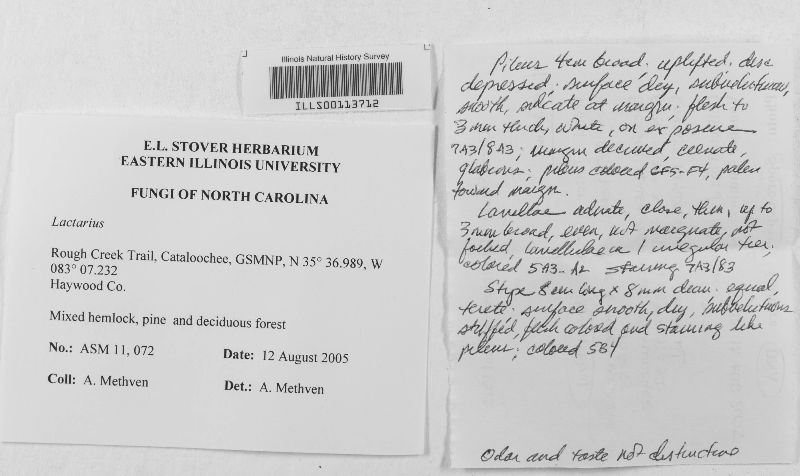 Illinois Natural History Survey
ILLS00113712
E.L. STOVER HERBARIUM
EASTERN ILLINOIS UNIVERSITY
FUNGI OF NORTH CAROLINA
Lactarius
Rough Creek Trail, Cataloochee, GSMNP, N 35° 36.989, W
083° 07.232
Haywood Co.
Mixed hemlock, pine and deciduous forest
No.: ASM 11, 072 Date: 12 August 2005
Coll: A. Methven Det.: A. Methven
Pileus 4cm broad. uplifted. disc
depressed; surface dry, subvelutinous,
smooth, sulcate at margin; flesh to
3mm thick, white, on exposure
7A3/8A3; margin decurved, crenate,
glabrous; pileus colored 6F5-F4, paler
toward margin.
Lamellae adnate, close, thin, up to
3mm broad, even, not marginate, not
forked, lamellulae in 1 irregular tier;
colored 5A3-A2 staining 7A3/83
Stipe 8cm long x 8mm diam. equal,
terete. surface smooth, dry, subvelutinous
stuffed, flesh colored and staining like
pileus; colored 5B4
Odor and taste not distinctive